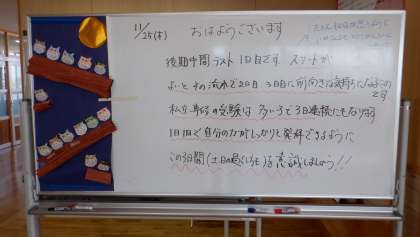 11/25(木) おはようございます
後期中間テスト 1日目です。スタートが
よいと その流れで2日目 3日目に前向きな気持ちになるもの
です
私立専願の受験は 多い人で3日連続にもなります
1日1日で自分の力がしっかりと発揮できるように
この3日間(土日の過ごし方も)を意識しましょう!!